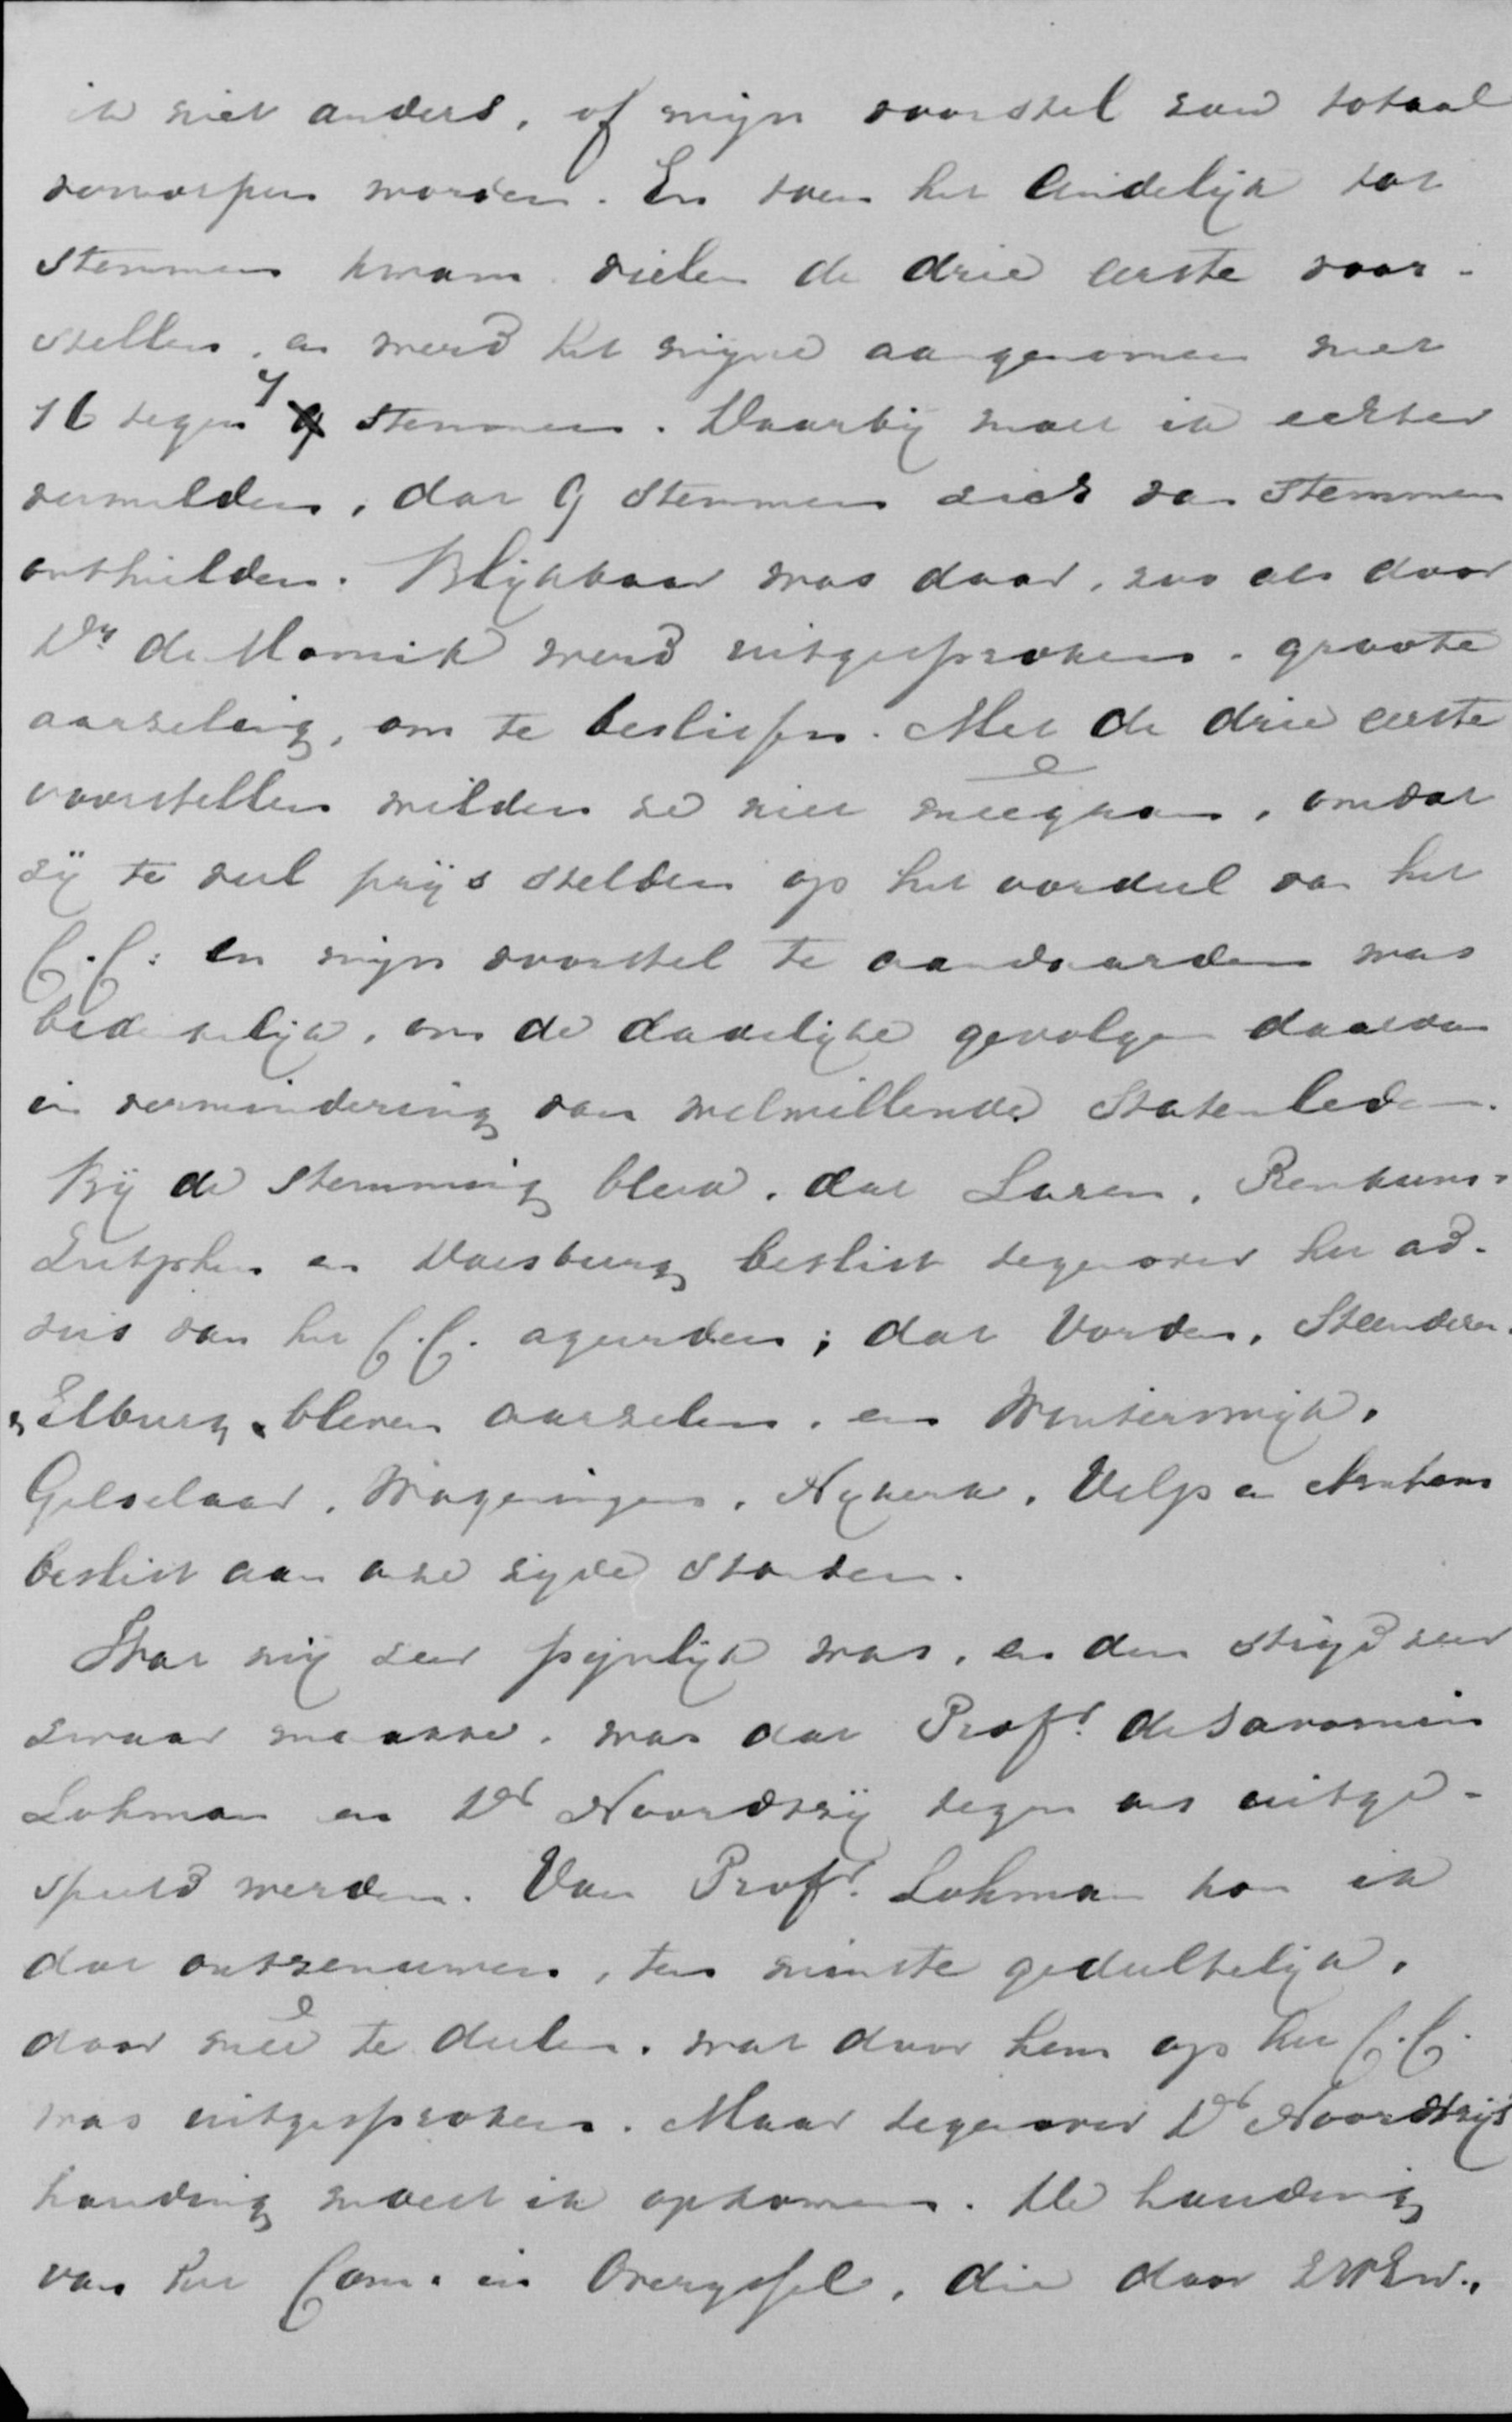 ik niet anders, of mijn voorstel zou totaal
verworpen worden. En toen het eindelijk tot
stemmen kwam vielen de drie eerste voor-
stellen, en werd het mijne aangenomen met
16 tegen 7 stemmen. Daarbij moet ik echter
vermelden, dat 9 stemmen zich van stemmen
onthielden. Blijkbaar was daar, zoo als door
Dr de Monik werd uitgesproken, groote
aarzeling, om te beslissen. Met de drie eerste
voorstellen wilden ze niet meegaan, omdat
zij te veel prijs stelden op het oordeel van het
C.C: en mijn voorstel te aanvaarden was
bedenkelijk, om de dadelijke gevolgen daarvan
in vermindering van welwillende Statenleden.
Bij de stemming bleek, dat Laren, Renkum,
Zutphen en Doesburg beslist tegenover het ad-
vies van het C.C. ageerden; dat Vorden, Steenderen,
Elburg bleven aarzelen, en Winterswijk,
Gelselaar, Wageningen, Nykerk, Velp en Arnhem
beslist aan onze zijde stonden.
Wat mij zeer pijnlijk was, en den strijd zeer
zwaar maakte, was dat Profr. de Savornin
Lohman en Dr Noordtzij tegen ons uitge-
speeld werden. Van Profr. Lohman kon ik
dat ontzenuwen, ten minste gedeeltelijk,
door meê te deelen, wat door hem op het C.C.
was uitgesproken. Maar tegenover Dr Noordtzij's
houding moest ik opkomen. De houding
van het Com. in Overyssel, die door ZWEw.,